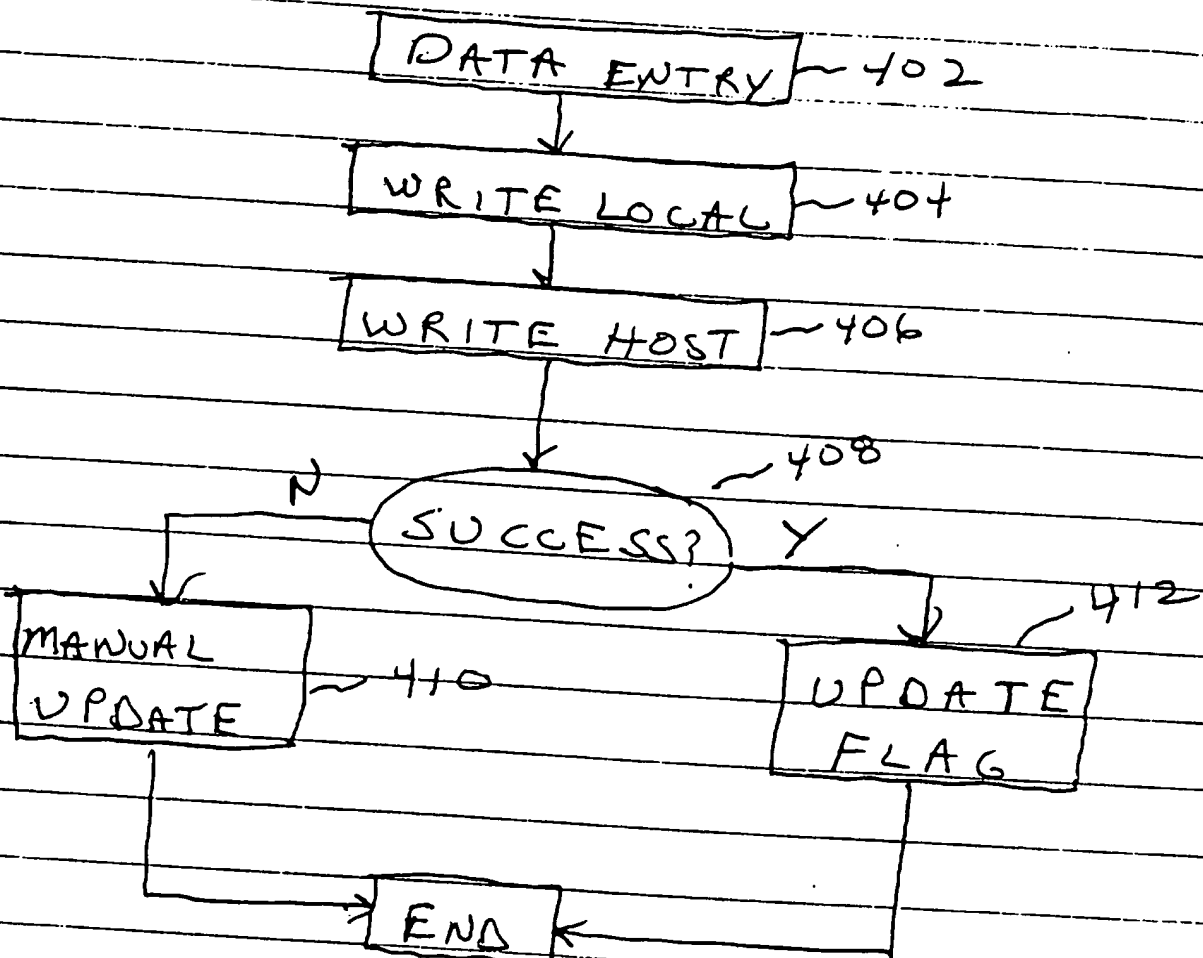 DATA ENTRY 402
WRITE LOCAL 404
WRITE HOST 406
408
N
SUCCESS? Y
412
MANUAL
UPDATE
410
UPDATE
FLAG
END